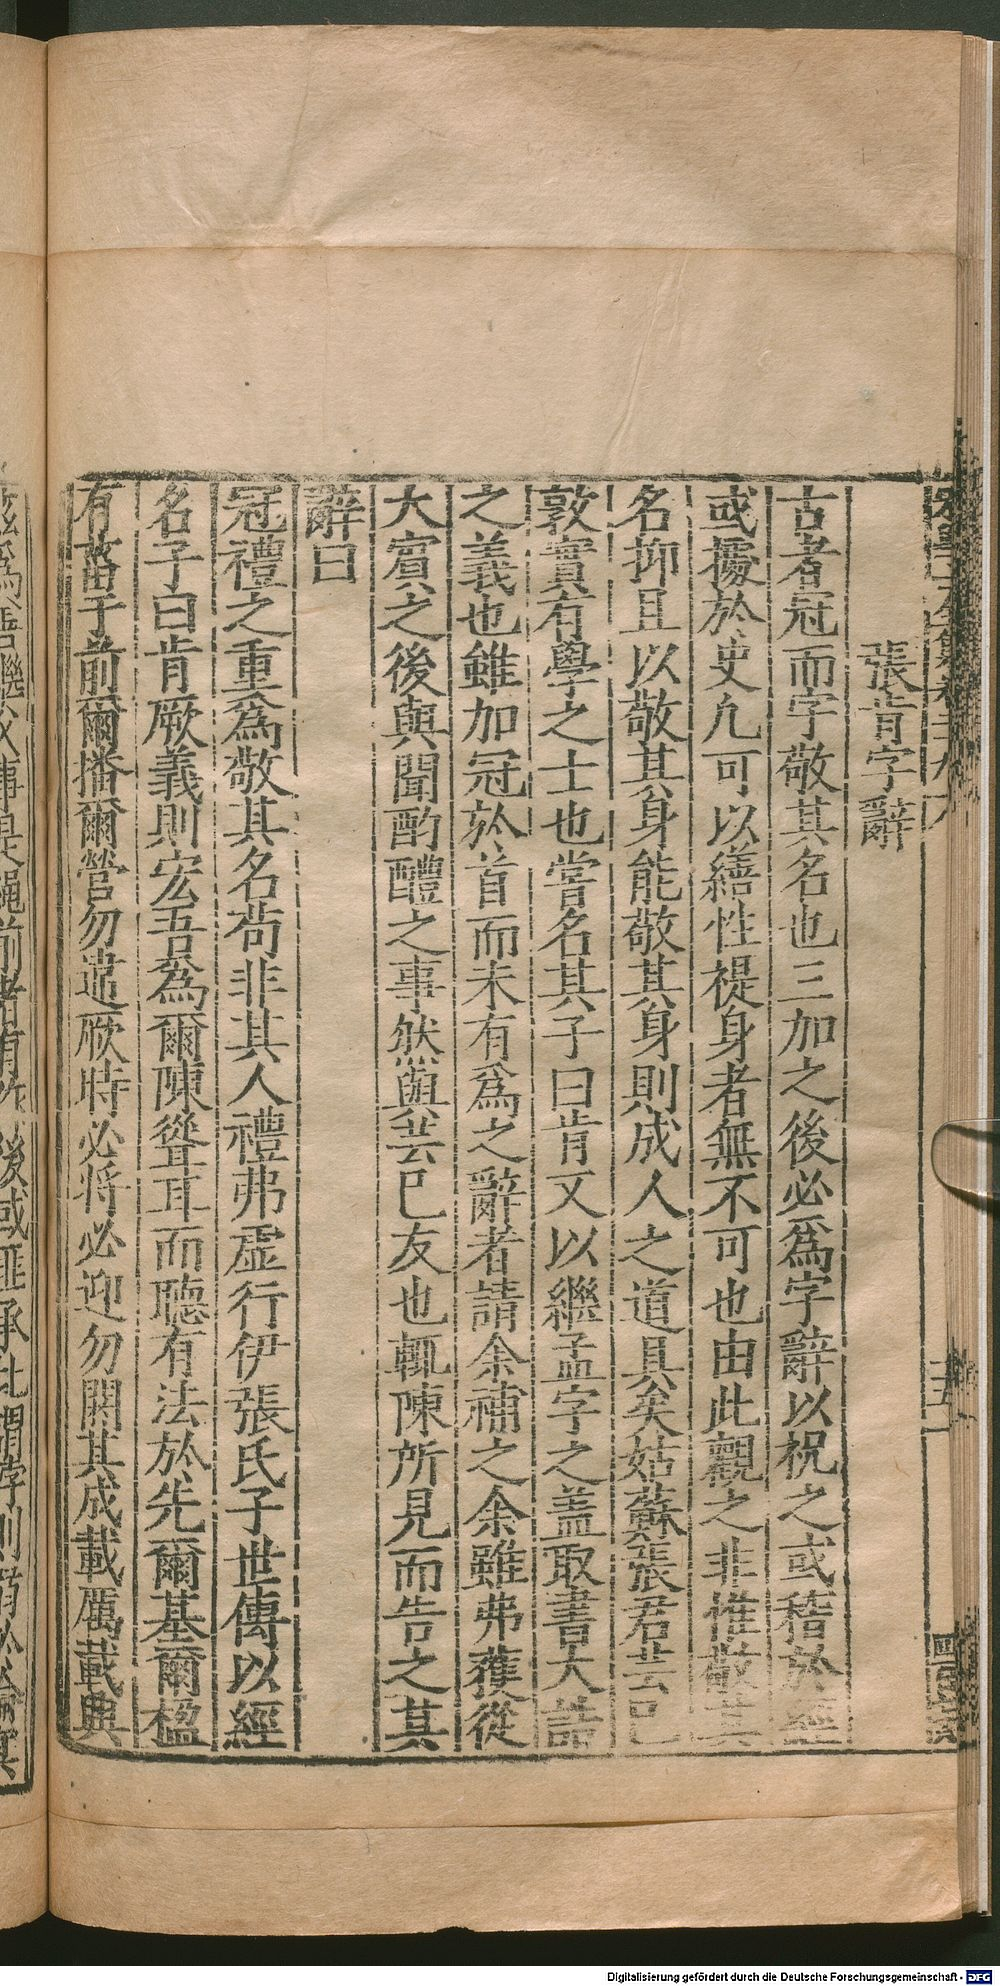 張肯字辭
古者冠而字敬其名也三加之後必爲字辭以祝之或稽於經
或據於史凢可以繕性禔身者無不可也由此觀之非惟敬其
名抑且以敬其身能敬其身則成人之道具矣姑蘇張君芸已
敦實有學之士也嘗名其子曰肯又以繼孟字之盖取書大誥
之義也雖加冠於首而未有爲之辭者請余補之余雖弗獲從
大賓之後與聞酌醴之事然與芸已友也輒陳所見而告之其
辭曰
冠禮之重爲敬其名茍非其人禮弗虛行伊張氏子世傳以經
名子曰肯厥義則宏吾爲爾陳聳耳而聽有法於先爾基爾楹
有菑于前爾播爾營勿違厥時必将必迎勿閼其成載厲載興
Digitalisierung gefördert durch die Deutsche Forschungsgemeinschaft - DFG